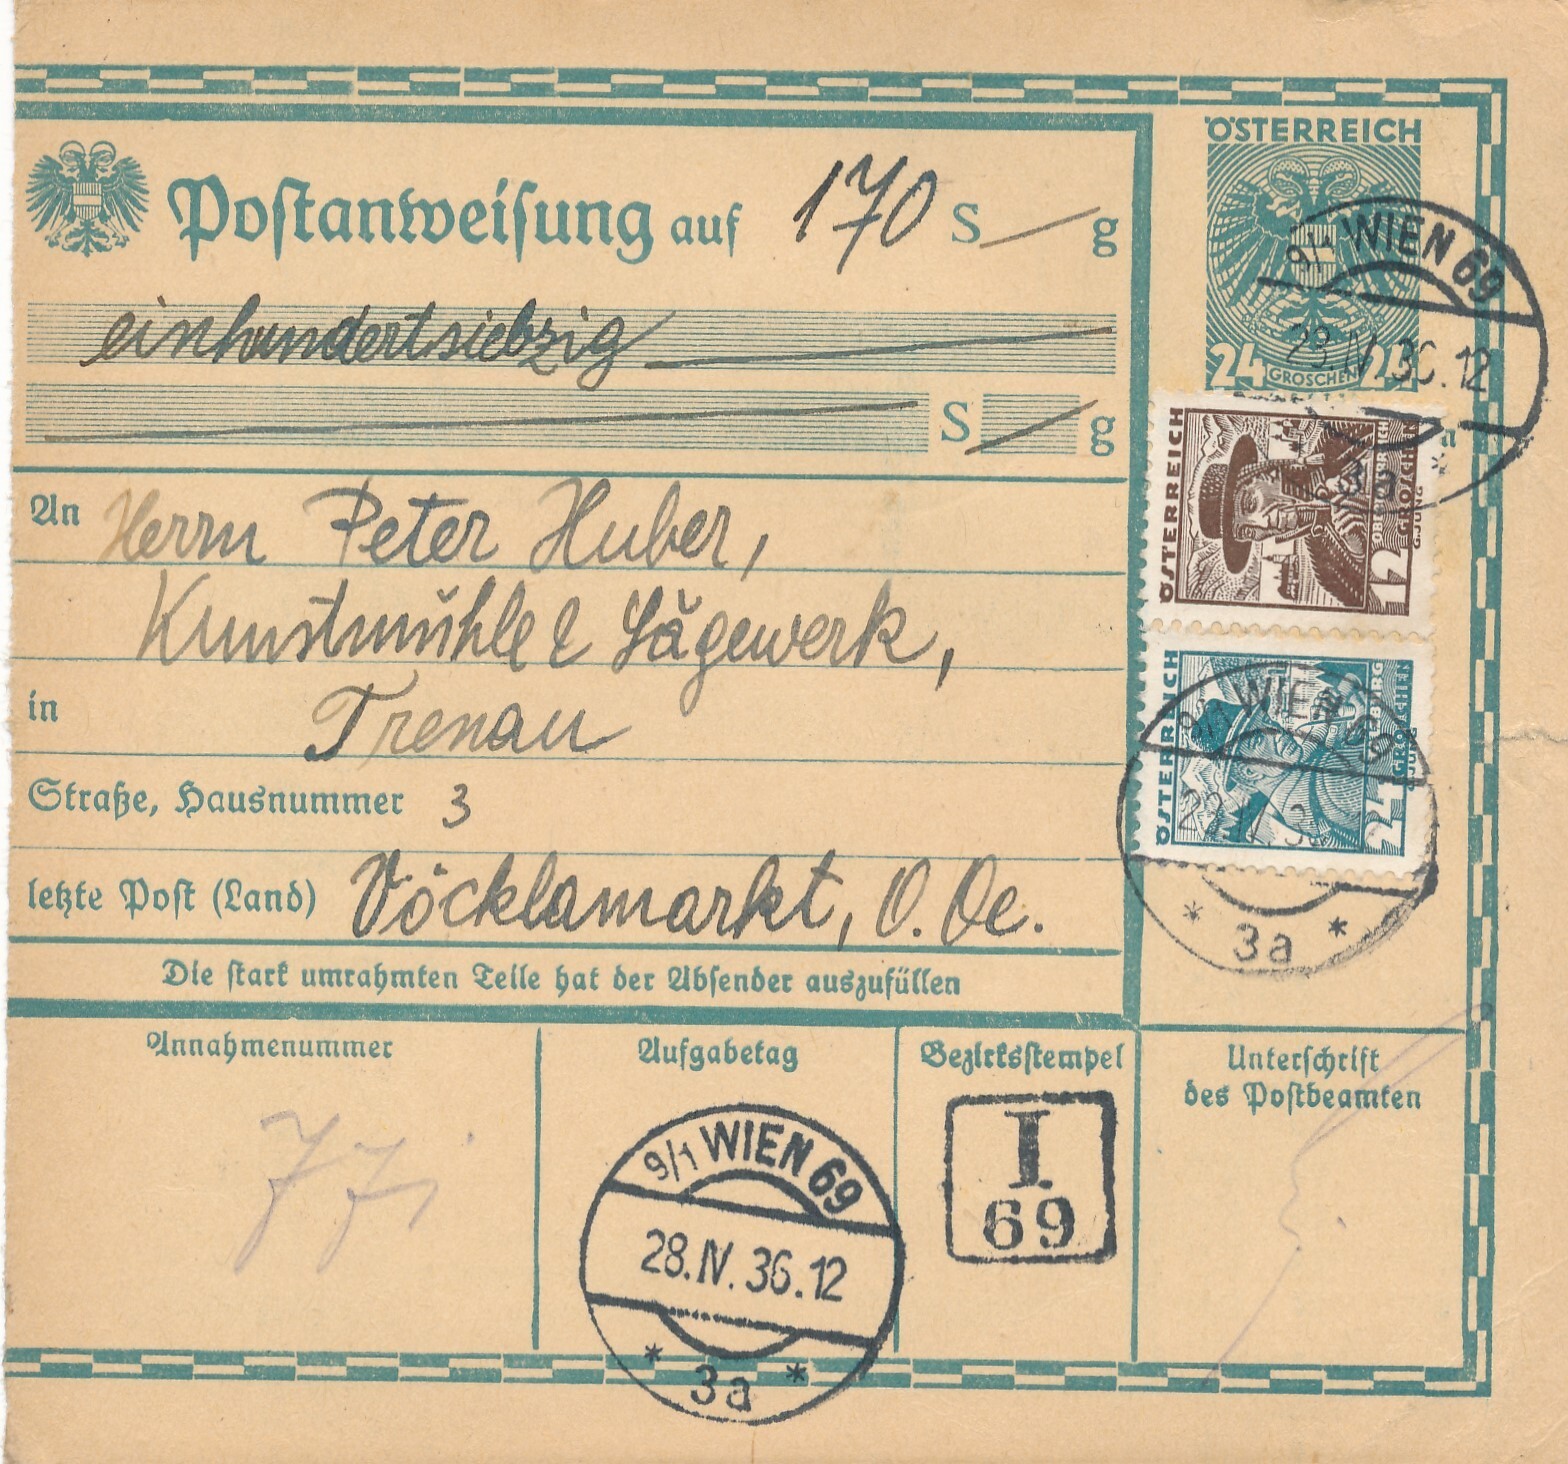 Postanweisung auf 170 S g
einhundertsiebzig
S g
An Herrn Peter Huber,
Kunstmühle & Sägewerk,
in Trenau
Straße, Hausnummer 3
letzte Post (Land) Vöcklamarkt, O. Oe.
Die stark umrahmten Teile hat der Absender auszufüllen
ÖSTERREICH
24 GROSCHEN 24
9/1 WIEN 69
28.IV.36.12
3a
ÖSTERREICH
12
GROSCHEN
G.JUNG
ÖSTERREICH
24
GROSCHEN
WIEN 69
* 3a *
Annahmenummer
77
Aufgabetag
9/1 WIEN 69
28.IV.36.12
* 3a *
Bezirksstempel
I
69
Unterschrift
des Postbeamten